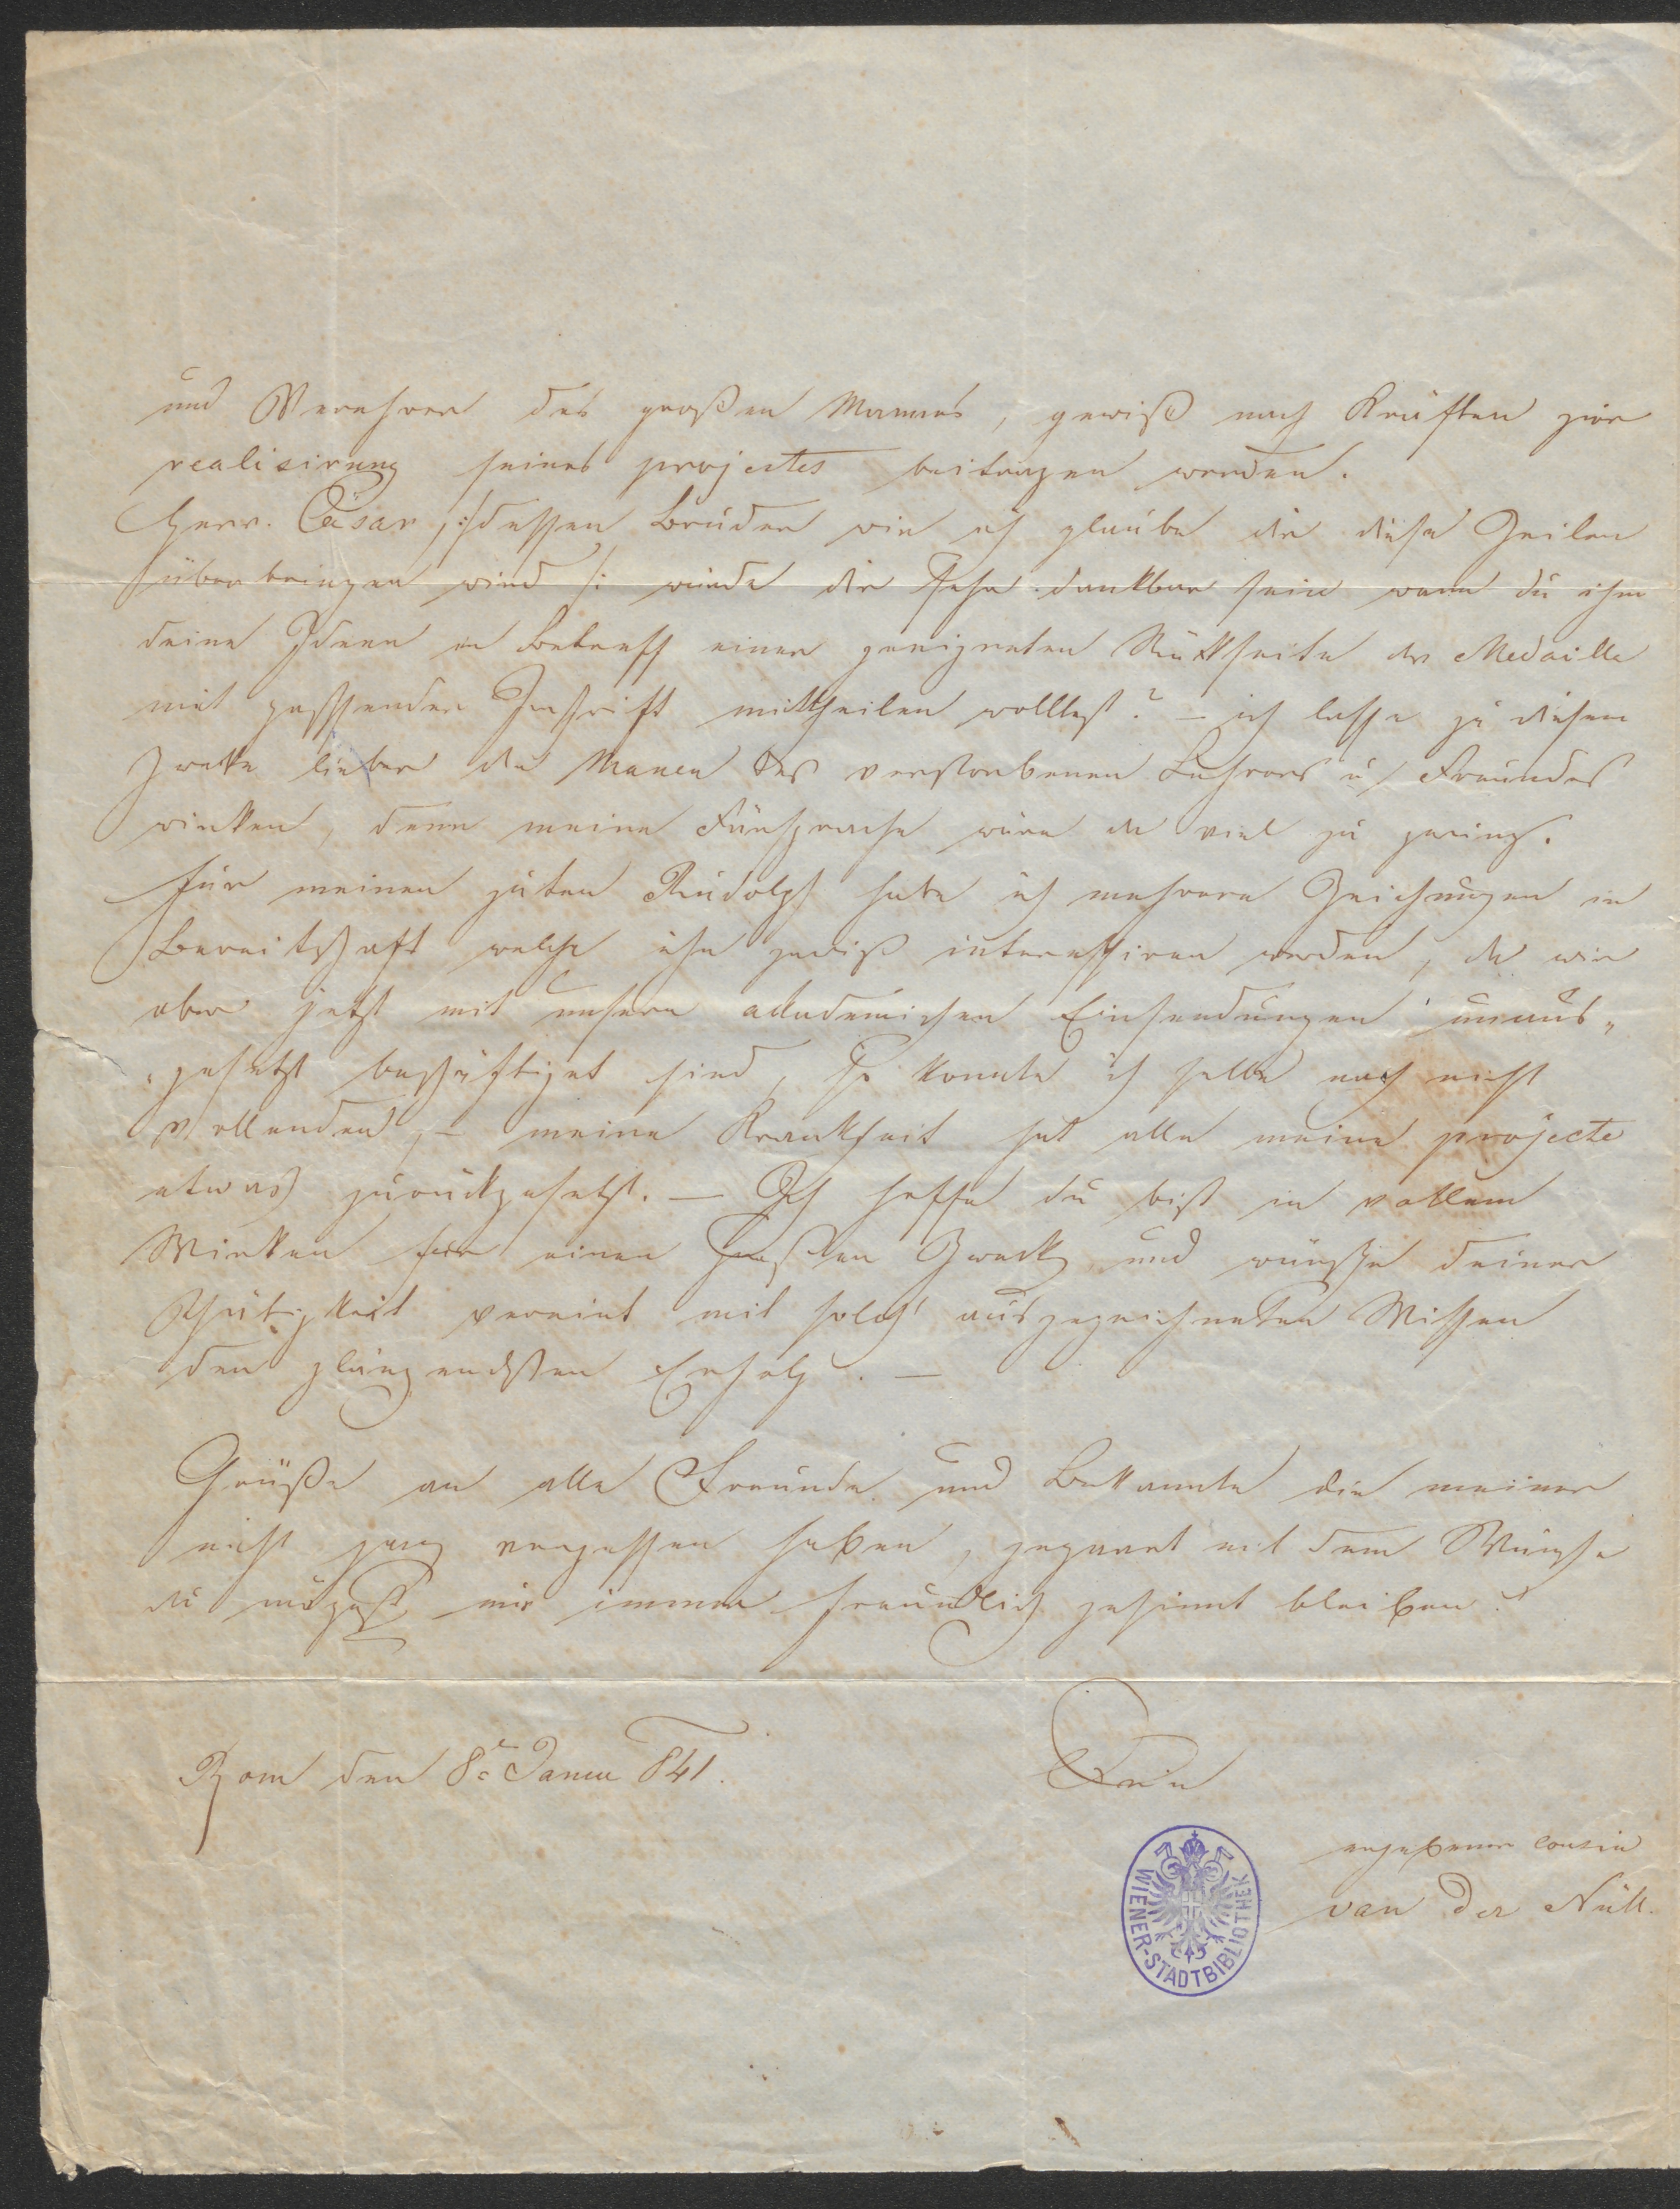 und Verehrer des großen Mannes, gewiß nach Kräften zur
realisirung seines projectes beitragen werden.
Herr. Cäsar /: dessen Bruder wie ich glaube dir diese Zeilen
überbringen wird :/ würde dir sehr dankbar sein wenn du ihm
deine Ideen in Betreff einer geeigneten Rükkseite der Medaille
mit passender Inschrift mittheilen wolltest? – ich lasse zu diesem
Zwecke lieber die Manen des verstorbenen Lehrers u Freundes
wirken, denn meine Fürsprache wäre da viel zu gering.
Für meinen guten Rudolph habe ich mehrere Zeichnungen in
Bereitschaft welche ihn gewiß interessiren werden, da wir
aber jetzt mit unsern akademischen Einsendungen unaus„
„gesetzt beschäftiget sind, so konnte ich selbe noch nicht
vollenden, – meine Krankheit hat alle meine projecte
etwas zurückgesetzt. – Ich hoffe du bist in vollem
Wirken für einen Zweck, und wünsche deiner
Thätigkeit vereint mit solch' ausgezeichneten Wissen
den glänzendsten Erfolg. –
Grüße an alle Freunde und Bekannte die meiner
nicht ganz vergessen haben, gepaart mit dem Wunsche
du mögest mir immer freundlich gesinnt bleiben!
Rom den 8t Janu 841.
Dein
ergebener cousin
van der Nüll.
WIENER-STADTBIBLIOTHEK